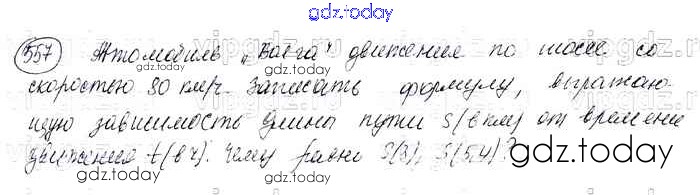 gdz.today
557 Автомобиль „Волга" движения по шоссе со
скоростью 80 км/ч. Записать формулу, выражаю
щую зависимость длины пути S(в км) от времени
движения t(в ч). Чему равно S(3), S(5,4)?
gdz.today